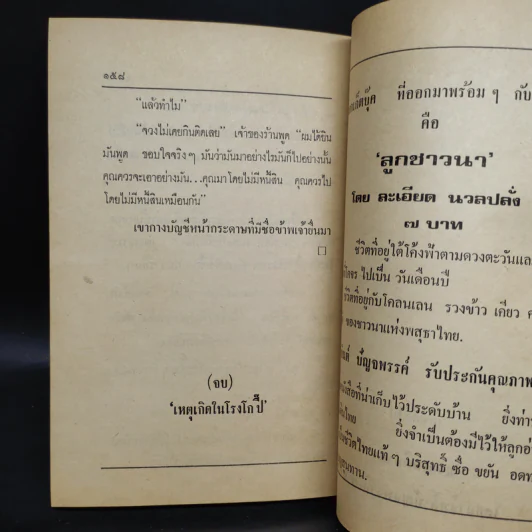 ๑๕๘
"แล้วทำไม"
"จวงไม่เคยกินติดเลย" เจ้าของร้านพูด "ผมได้ยิน
มันพูด ชอบใจจริงๆ มันว่ามันมาอย่างไรมันก็ไปอย่างนั้น
คุณควรจะเอาอย่างมัน...คุณมาโดยไม่มีหนี้สิน คุณควรไป
โดยไม่มีหนี้สินเหมือนกัน"
เขากางบัญชีหน้ากระดาษที่มีชื่อข้าพเจ้ายื่นมา
(จบ)
'เหตุเกิดในโรงโกปี๊'
ที่ออกมาพร้อมๆ กับ
คือ
'ลูกชาวนา'
โดย ละเอียด นวลปลั่ง
๗ บาท
ชีวิตที่อยู่ใต้โค้งฟ้าตามดวงตะวันและ
ไปเป็น วันเดือนปี
ชีวิตที่อยู่กับโคลนเลน รวงข้าว เคียว
ของชาวนาแห่งพสุธาไทย.
ปัญจพรรค์ รับประกันคุณภาพ
หนังสือที่น่าเก็บไว้ประดับบ้าน ยิ่งท่าน
ยิ่งจำเป็นต้องมีไว้ให้ลูก
ชีวิตไทยแท้ๆ บริสุทธิ์ ซื่อ ขยัน อดท